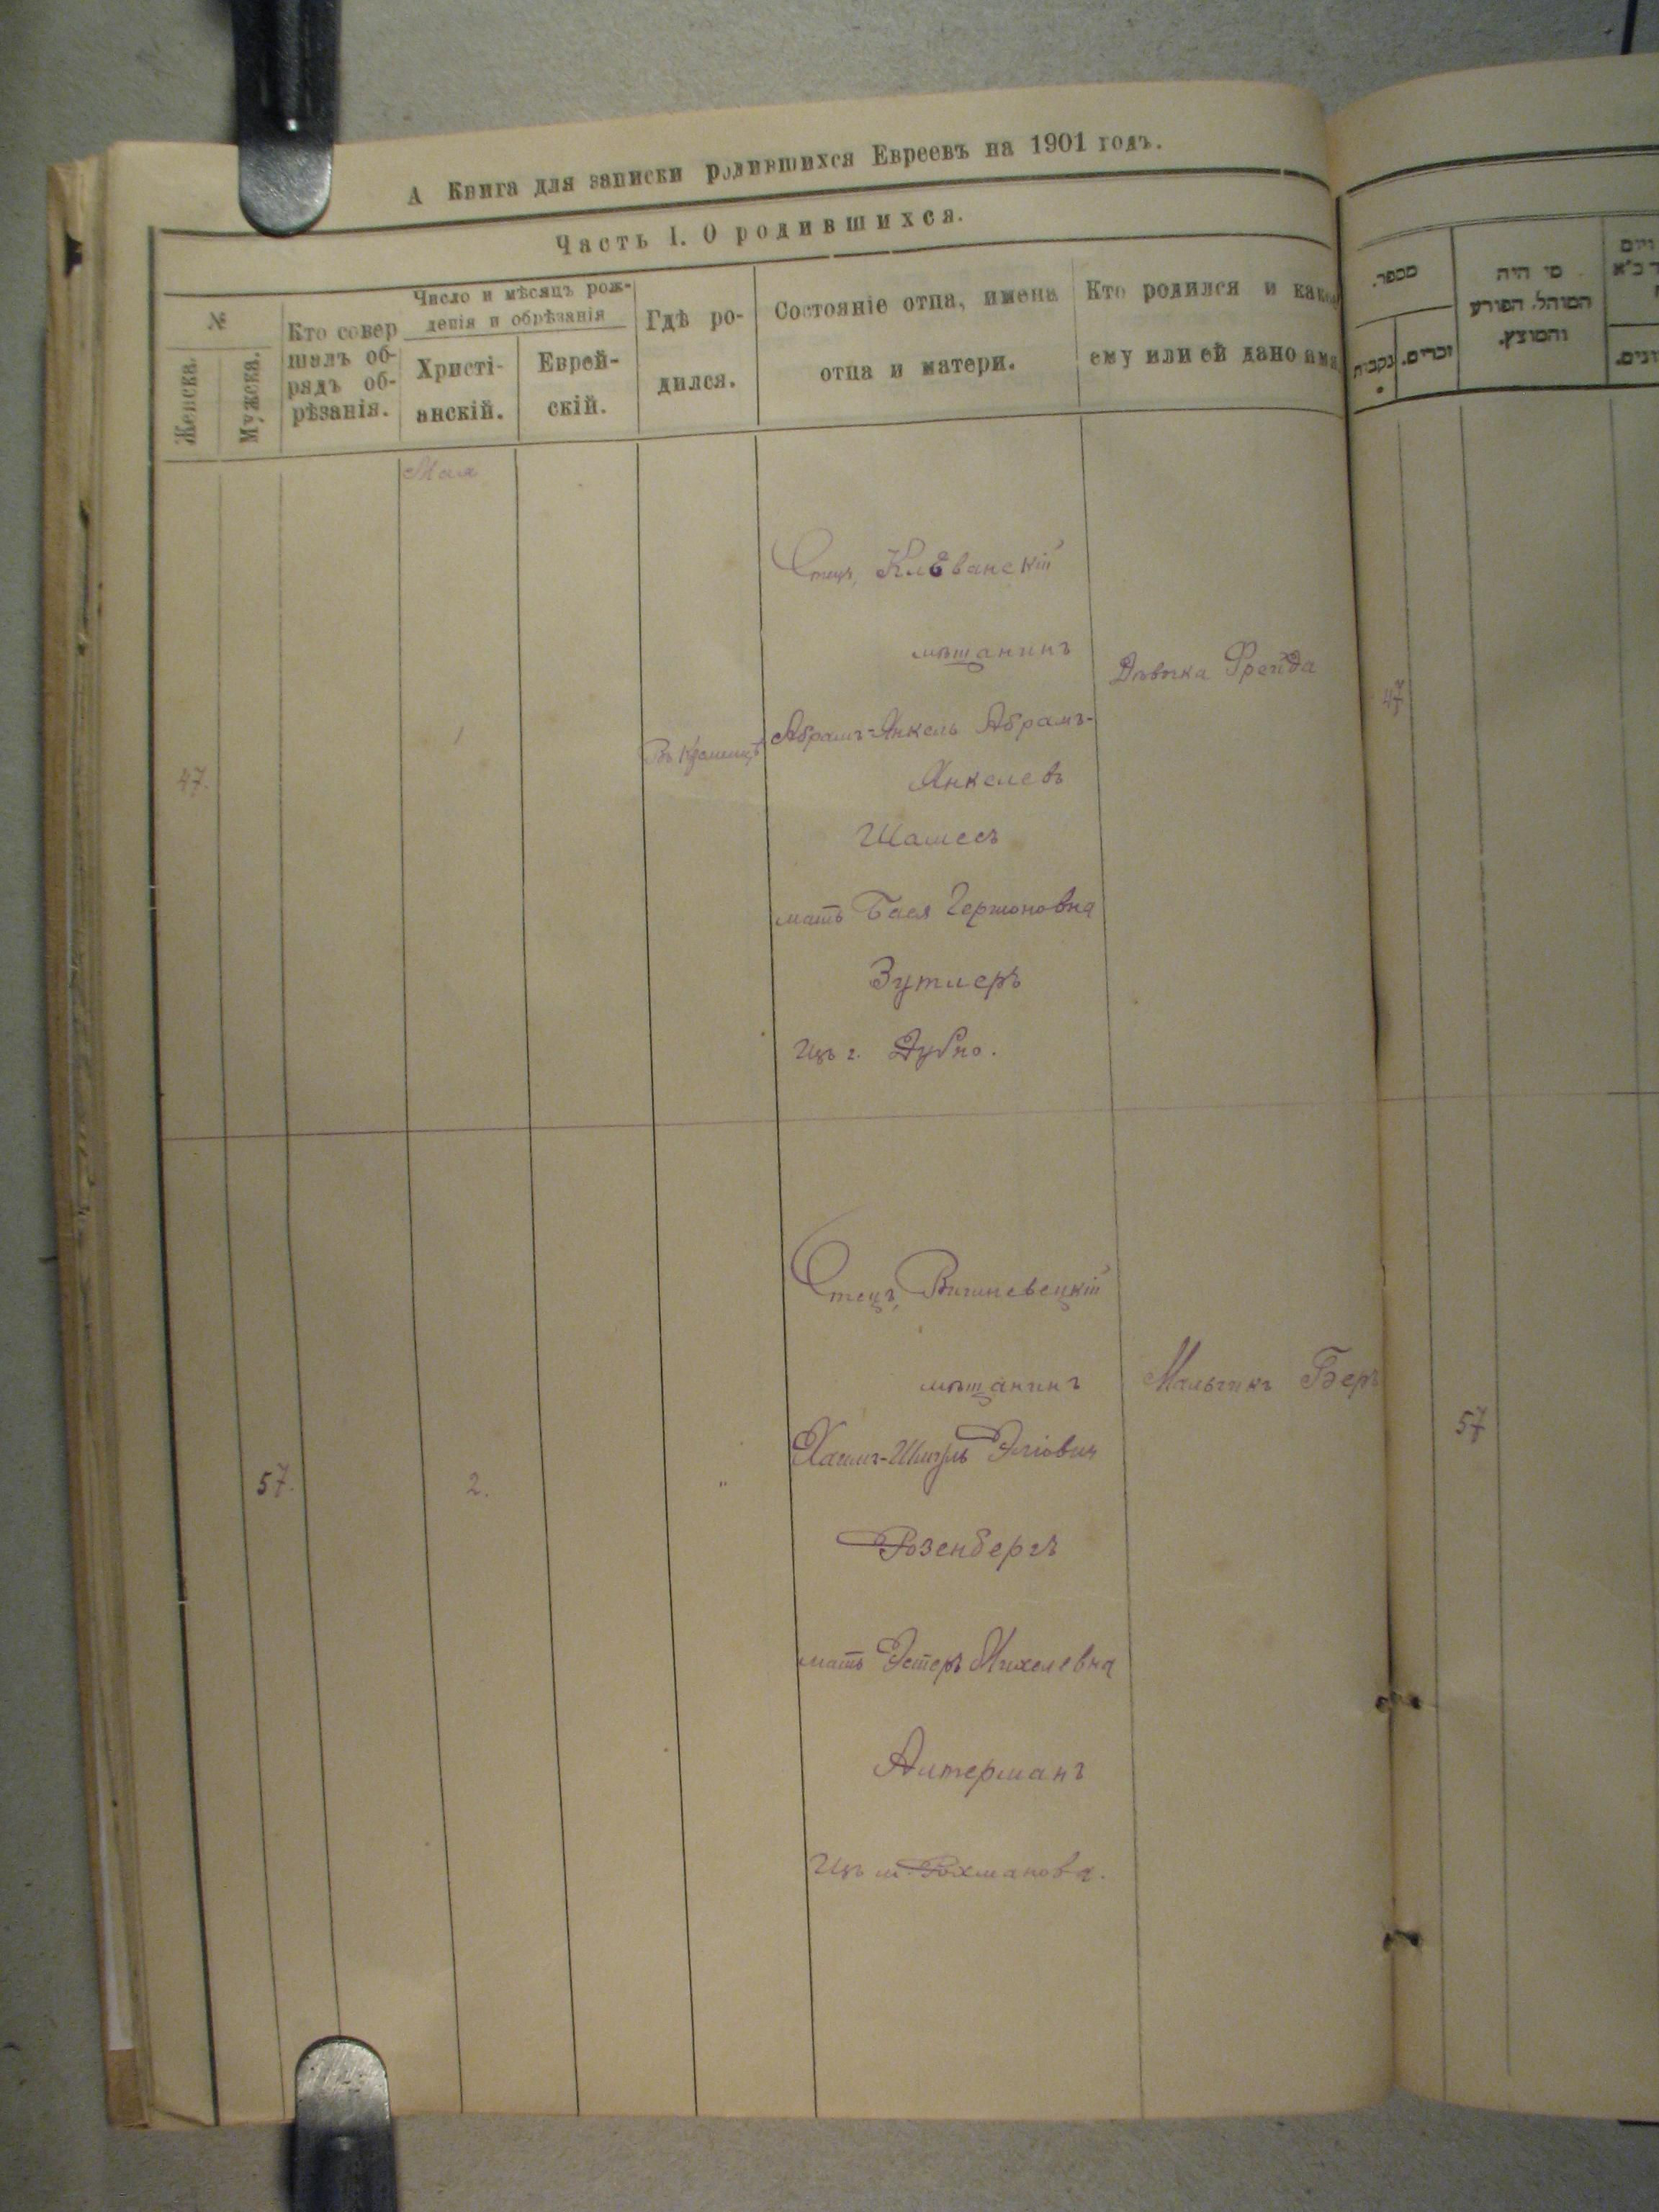 А Книга для записки родившихся Евреевъ на 1901 годъ.
Часть I. О родившихся.
№
Женска.
Мужска.
Кто совер
шалъ об-
рядъ об-
рѣзанія.
Число и мѣсяцъ рож-
денія и обрѣзанія
Христі-
анскій.
Еврей-
скій.
Гдѣ ро-
дился.
Состояніе отца, имена
отца и матери.
Кто родился и какое
ему или ей дано имя
Мая
47.
1
Въ Кременцѣ
Отецъ, Клеванскій
мѣщанинъ
Абрамъ-Янкель Абрамъ-
Янкелевъ
Шамесъ
мать Бася Гершоновна
Зутлеръ
Изъ г. Дубно.
Дѣвочка Фрейда
57.
2.
"
Отецъ, Вишневецкій
мѣщанинъ
Хаимъ-Шмуль Эліовичъ
Розенбергъ
мать Эстеръ Михелевна
Алтерманъ
Изъ м. Рохманова.
Мальчикъ Беръ
מספר.
נקבות
זכרים.
מי היה
המוהל, הפורע
והמוצץ.
47
57